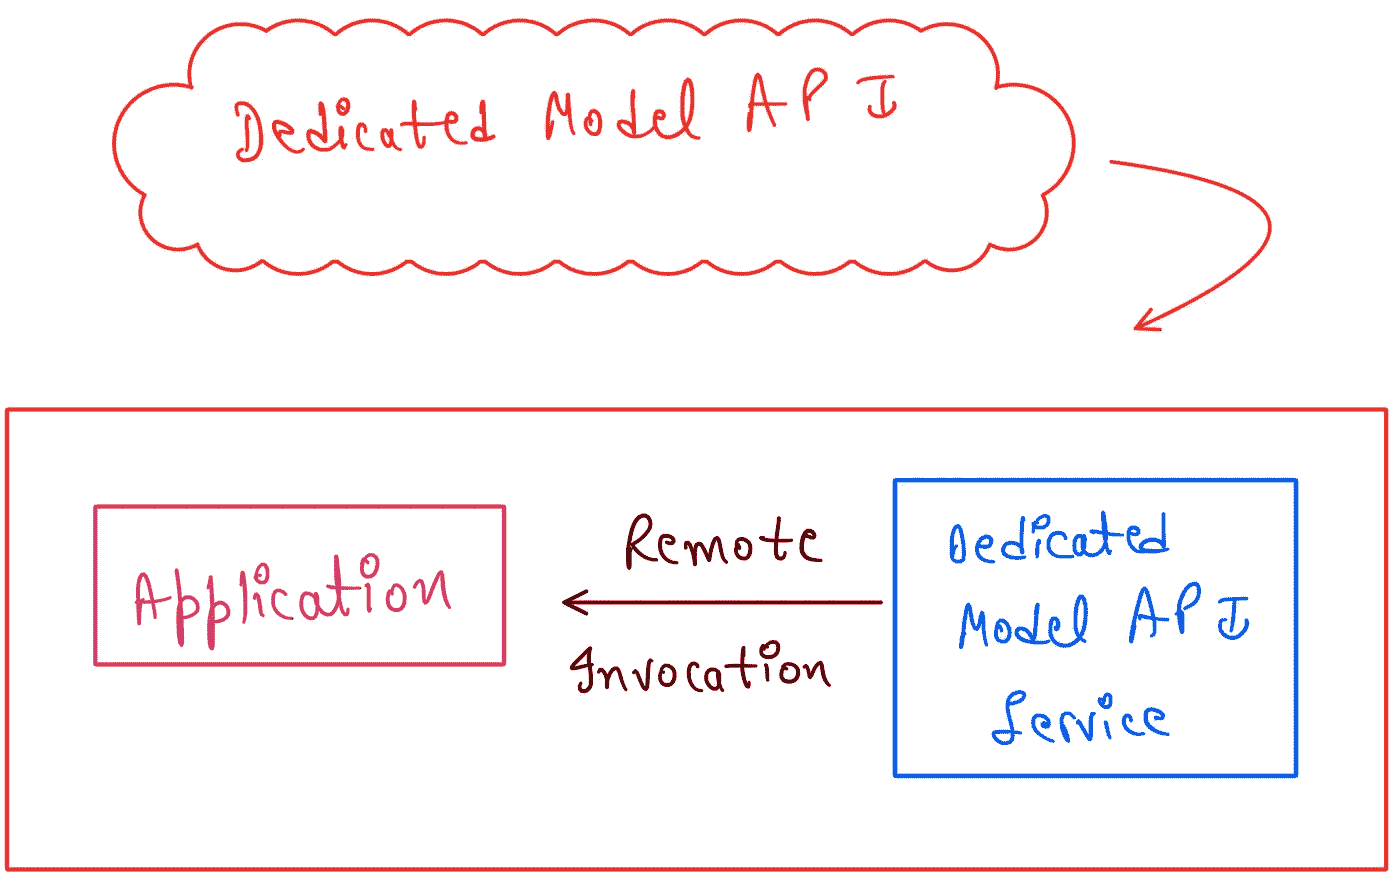 Dedicated Model API
Remote
Application
Invocation
Dedicated
Model API
Service